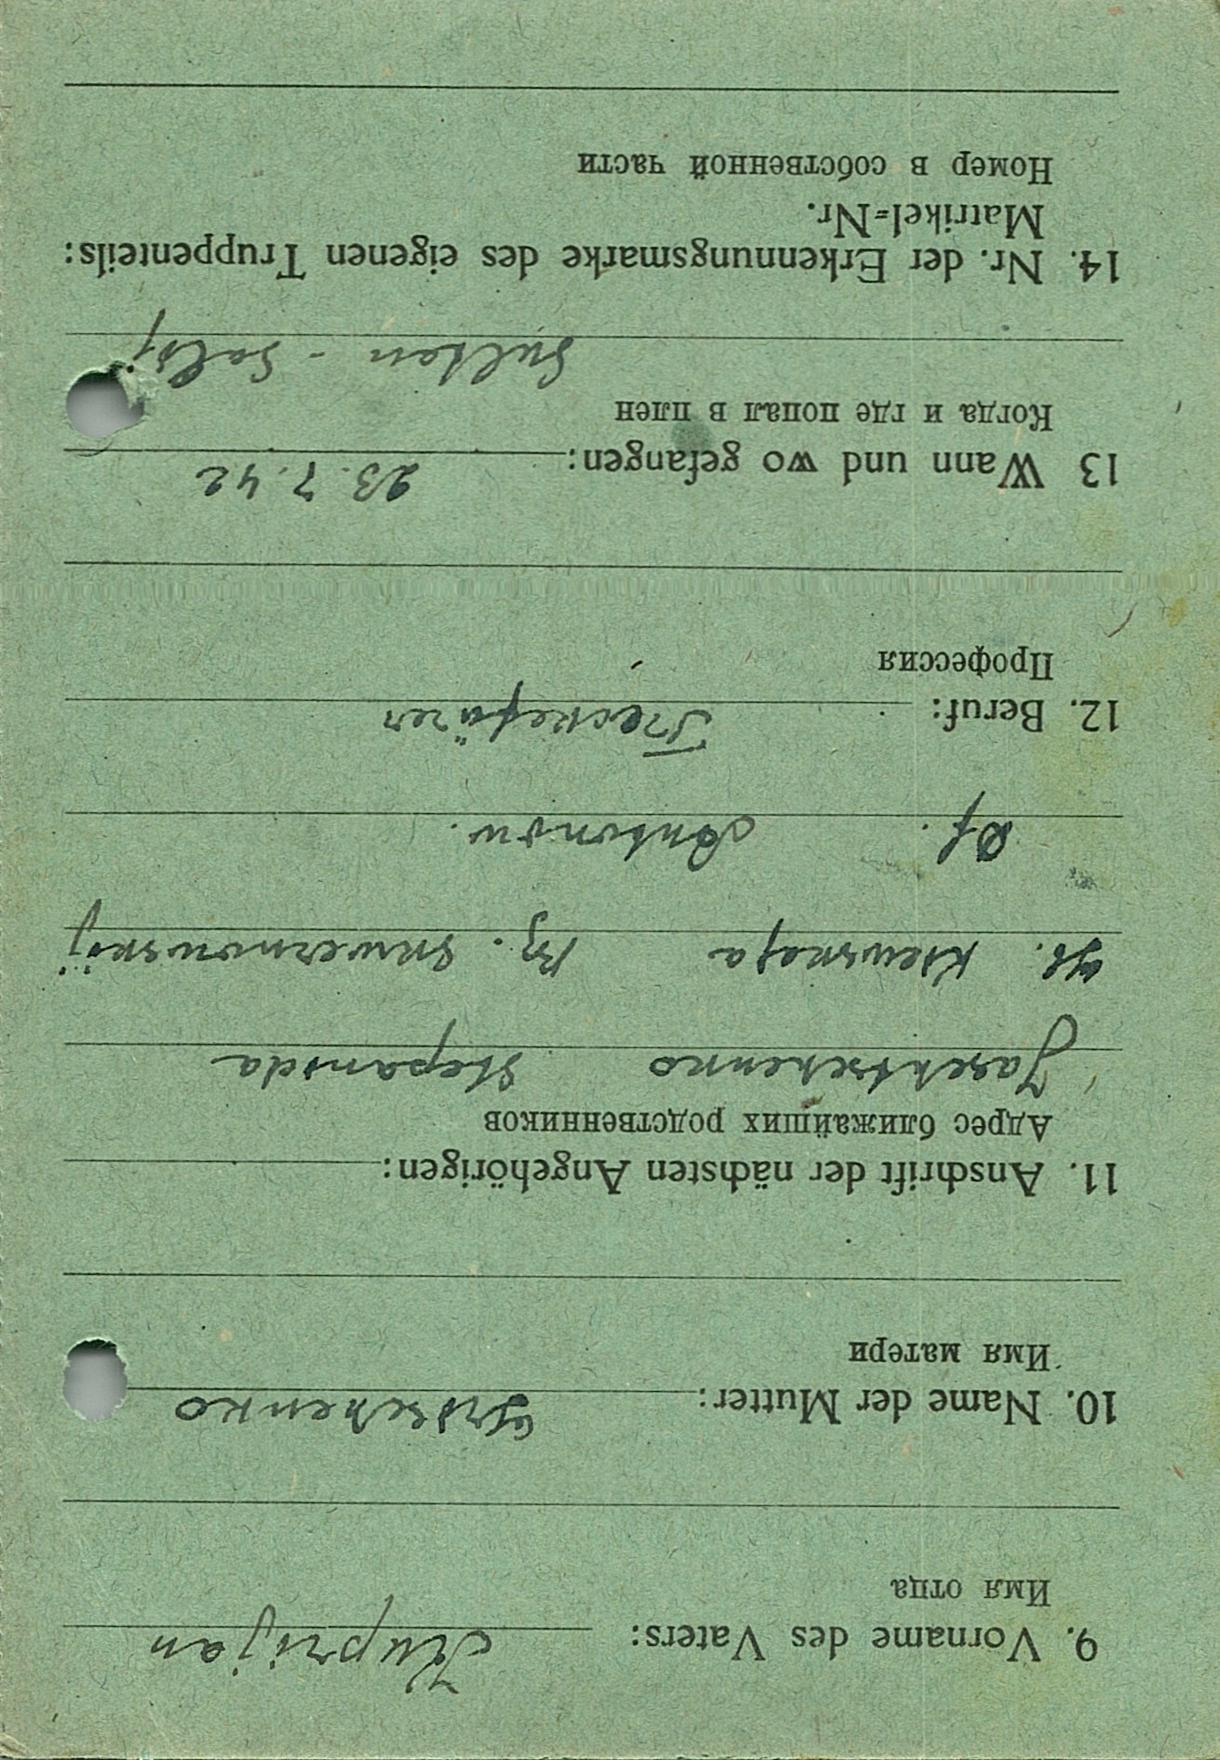 9. Vorname des Vaters: Kuprijan
Имя отца
10. Name der Mutter: Grischenko
Имя матери
11. Anschrift der nächsten Angehörigen:
Адрес ближайших родственников
Jaschtschenko Stepanida
Kiewskaja
Df. Antonow.
12. Beruf:
Профессия
13 Wann und wo gefangen: 23.7.42
Когда и где попал в плен
Sultan - Saly
14. Nr. der Erkennungsmarke des eigenen Truppenteils:
Matrikel=Nr.
Номер в собственной части